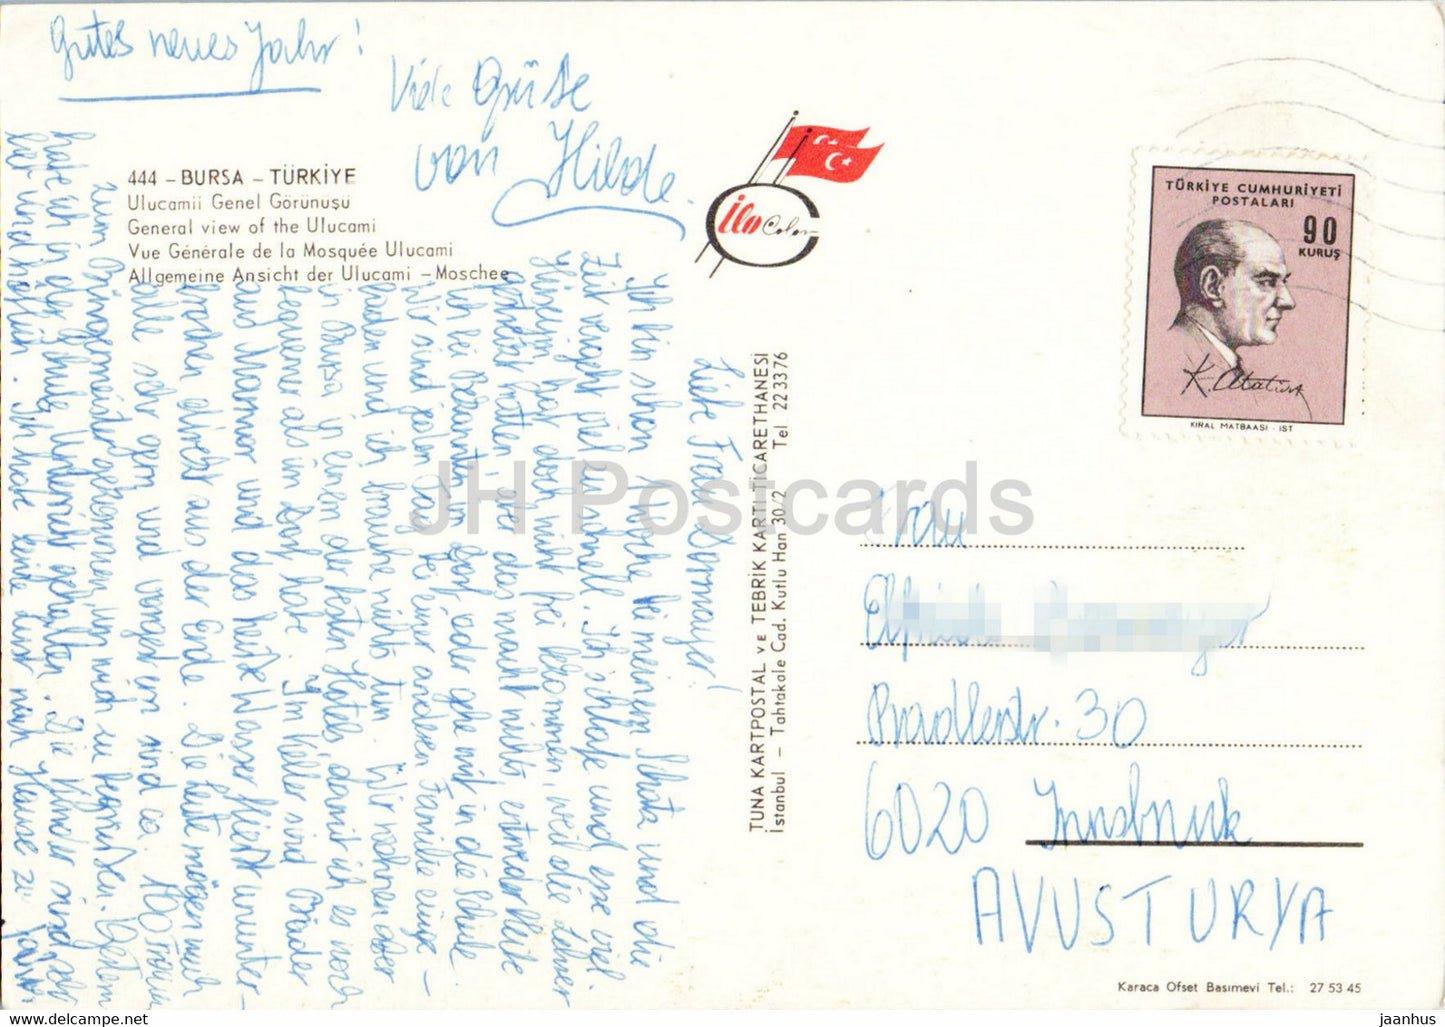 Gutes neues Jahr!
Viele Grüße
von Hilde.
444 – BURSA – TÜRKİYE
Ulucamii Genel Görünuşu
General view of the Ulucami
Vue Générale de la Mosquée Ulucami
Allgemeine Ansicht der Ulucami – Moschee
Liebe Frau Dormayer!
Ich bin schon 1 Woche bei meinem Schatz und die
Zeit vergeht viel zu schnell. Ich schlafe und esse viel.
Hüseyin hat auch nicht frei bekommen, weil die Lehrer
gestreikt hatten, aber das macht nichts entweder bleibe
ich bei Bekannten im Dorf, oder gehe mit in die Schule.
Wir sind jeden Tag bei einer anderen Familie einge-
laden und ich brauche nichts tun. Wir wohnen aber
in Bursa in einem der besten Hotels, damit ich es noch
bequemer als im Dorf habe. Im Keller sind Bäder
aus Marmor und das heiße Wasser fließt ununter-
brochen direkt aus der Erde. Die Leute mögen mich
alle sehr gern und vorgestern sind ca. 100 Frauen
zum Bürgermeister gekommen, um mich zu begrüßen. Gestern
habe ich in der Schule Unterricht gehalten. Die Kinder sind sehr
lieb und höflich. Ich habe keine Lust nach Hause zu
İlo Color
TUNA KARTPOSTAL ve TEBRİK KARTI TİCARETHANESİ
İstanbul – Tahtakale Cad. Kutlu Han 30/2 Tel 22 33 76
TÜRKİYE CUMHURİYETİ
POSTALARI
90
KURUŞ
K. Atatürk
KIRAL MATBAASI - İST
JH Postcards
Frau
Bradlerstr. 30
6020 Innsbruck
AVUSTURYA
Karaca Ofset Basımevi Tel.: 27 53 45
jaanhus